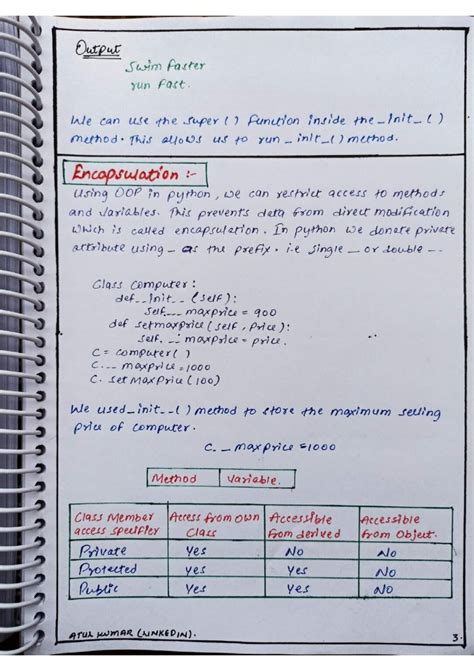 Output
Swim faster
run fast.
We can use the super ( ) function inside the _init_ ( )
method. This allows us to run _init_( ) method.
Encapsulation :-
Using OOP in python, we can restrict access to methods
and variables. This prevents data from direct modification
which is called encapsulation. In python we donate private
attribute using _ as the prefix. i.e single _ or double --.
Class Computer :
def__init__ (self) :
self.__maxprice = 900
def setmaxprice (self, price) :
self.__maxprice = price.
C = computer( )
C.__maxprice = 1000
C. set Max Price (100)
We used_init__( ) method to store the maximum selling
price of computer.
C. _ maxprice = 1000
Method Variable.
Class Member Access from own Accessible Accessible
access specifier Class from derived from Object.
Private Yes No No
Protected Yes Yes No
Public Yes Yes Yes
ATUL KUMAR (LINKEDIN). 3.